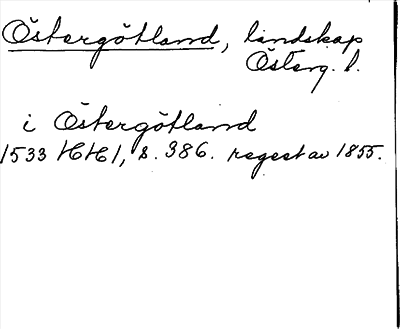 Östergötland, landskap
Österg. l.
i Östergötland
1533 HH 1, s. 386. regest av 1855.